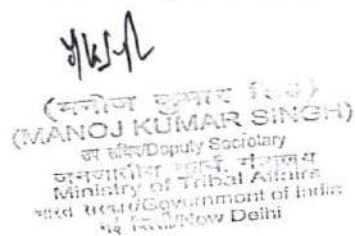 (मनोज कुमार
(MANOJ KUMAR SINGH)
उप सचिव/Deputy Secretary
जनजातीय
Ministry of Tribal Affairs
भारत सरकार/Government of India
नई दिल्ली/New Delhi